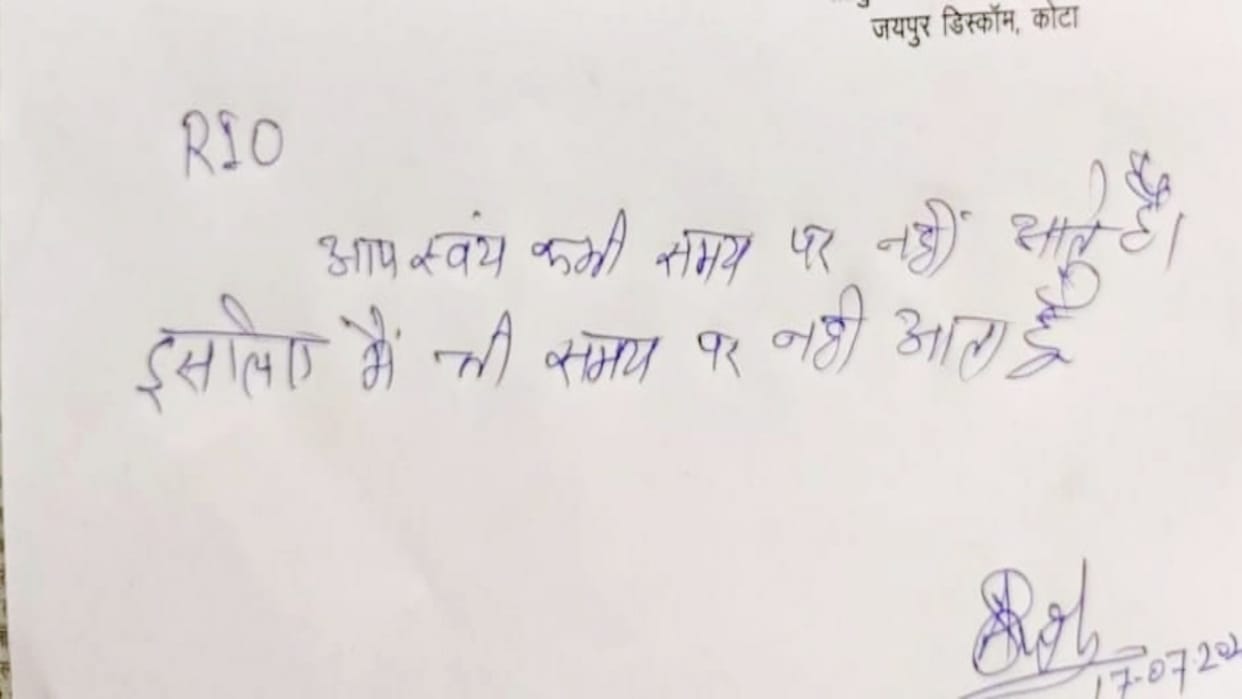 जयपुर डिस्कॉम, कोटा
RIO
आप स्वंय कभी समय पर नहीं आते है।
इसलिए मैं भी समय पर नही आता हूँ
17-07-202